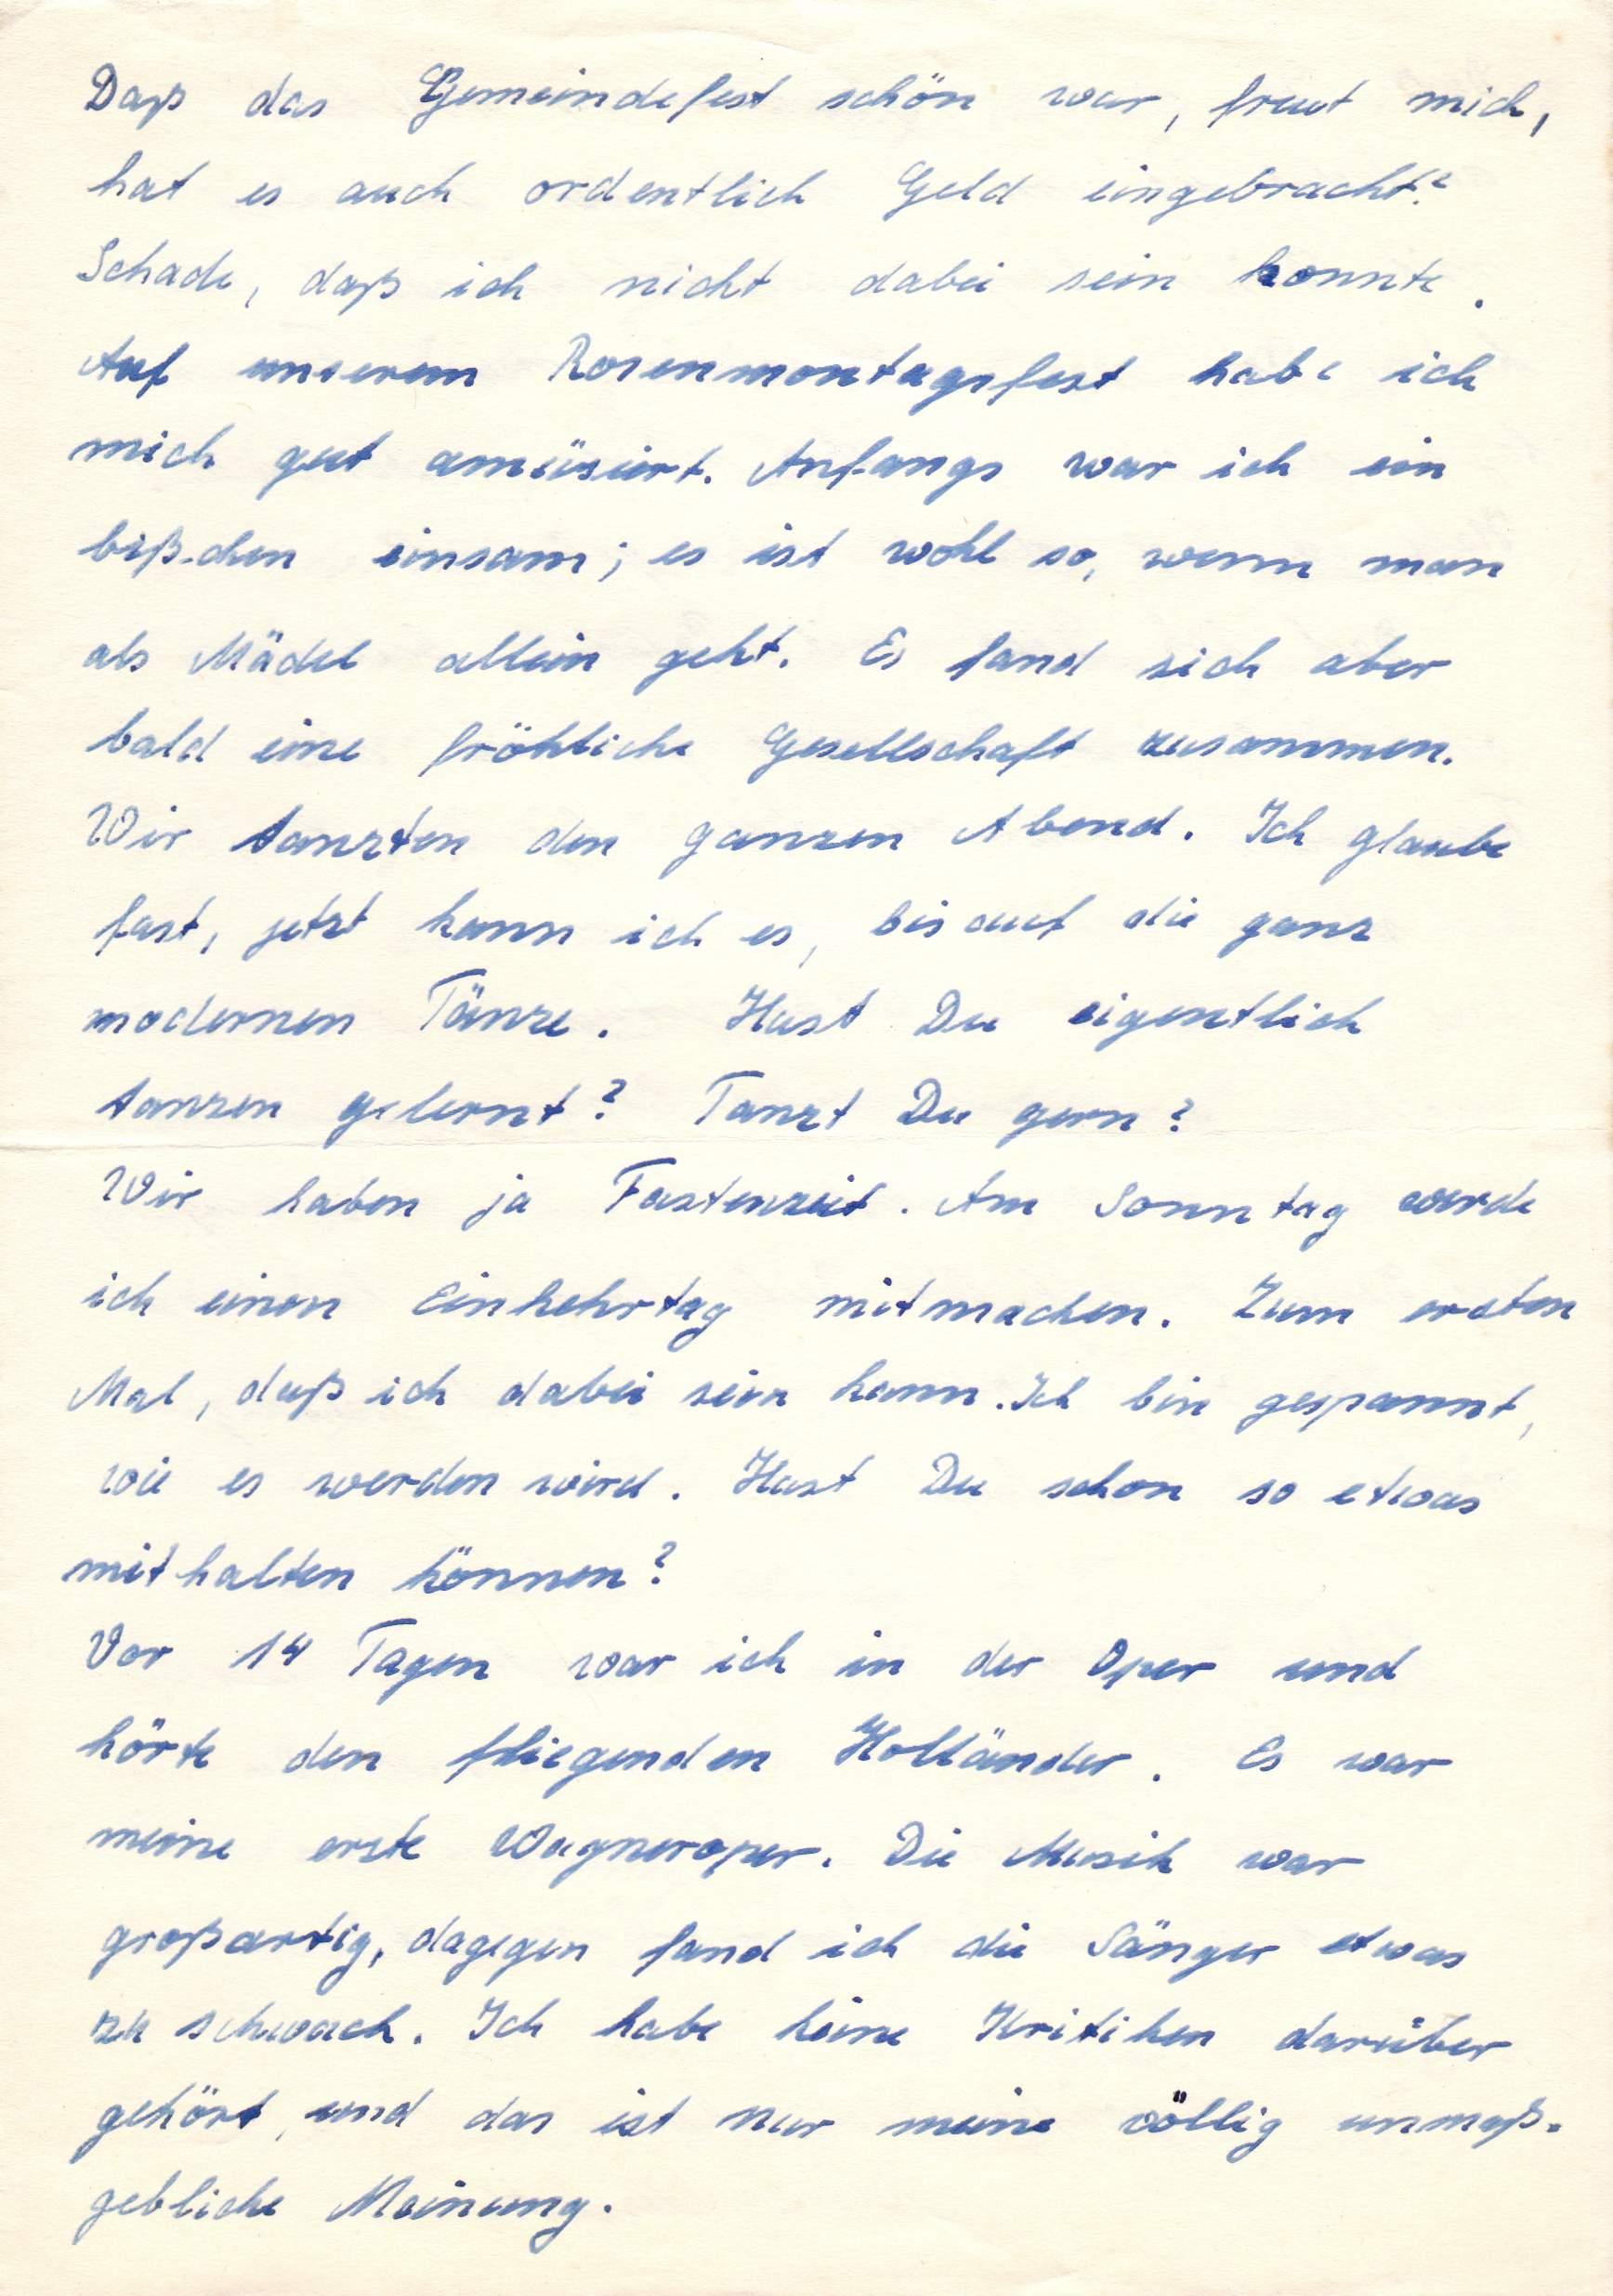 Daß das Gemeindefest schön war, freut mich,
hat es auch ordentlich Geld eingebracht?
Schade, daß ich nicht dabei sein konnte.
Auf unserem Rosenmontagsfest habe ich
mich gut amüsiert. Anfangs war ich ein
bißchen einsam; es ist wohl so, wenn man
als Mädel allein geht. Es fand sich aber
bald eine fröhliche Gesellschaft zusammen.
Wir tanzten den ganzen Abend. Ich glaube
fast, jetzt kann ich es, bis auf die ganz
modernen Tänze. Hast Du eigentlich
tanzen gelernt? Tanzt Du gern?
Wir haben ja Fastenzeit. Am Sonntag werde
ich einen Einkehrtag mitmachen. Zum ersten
Mal, daß ich dabei sein kann. Ich bin gespannt,
wie es werden wird. Hast Du schon so etwas
mithalten können?
Vor 14 Tagen war ich in der Oper und
hörte den fliegenden Holländer. Es war
meine erste Wagneroper. Die Musik war
großartig, dagegen fand ich die Sänger etwas
zu schwach. Ich habe keine Kritiken darüber
gehört, und das ist nur meine völlig unmaß-
gebliche Meinung.